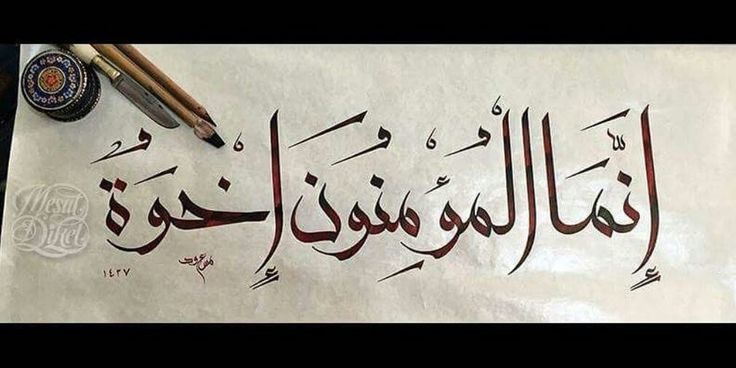 إِنَّمَا الْمُؤْمِنُونَ إِخْوَةٌ
مسعود
١٤٣٧
Mesut Dikel